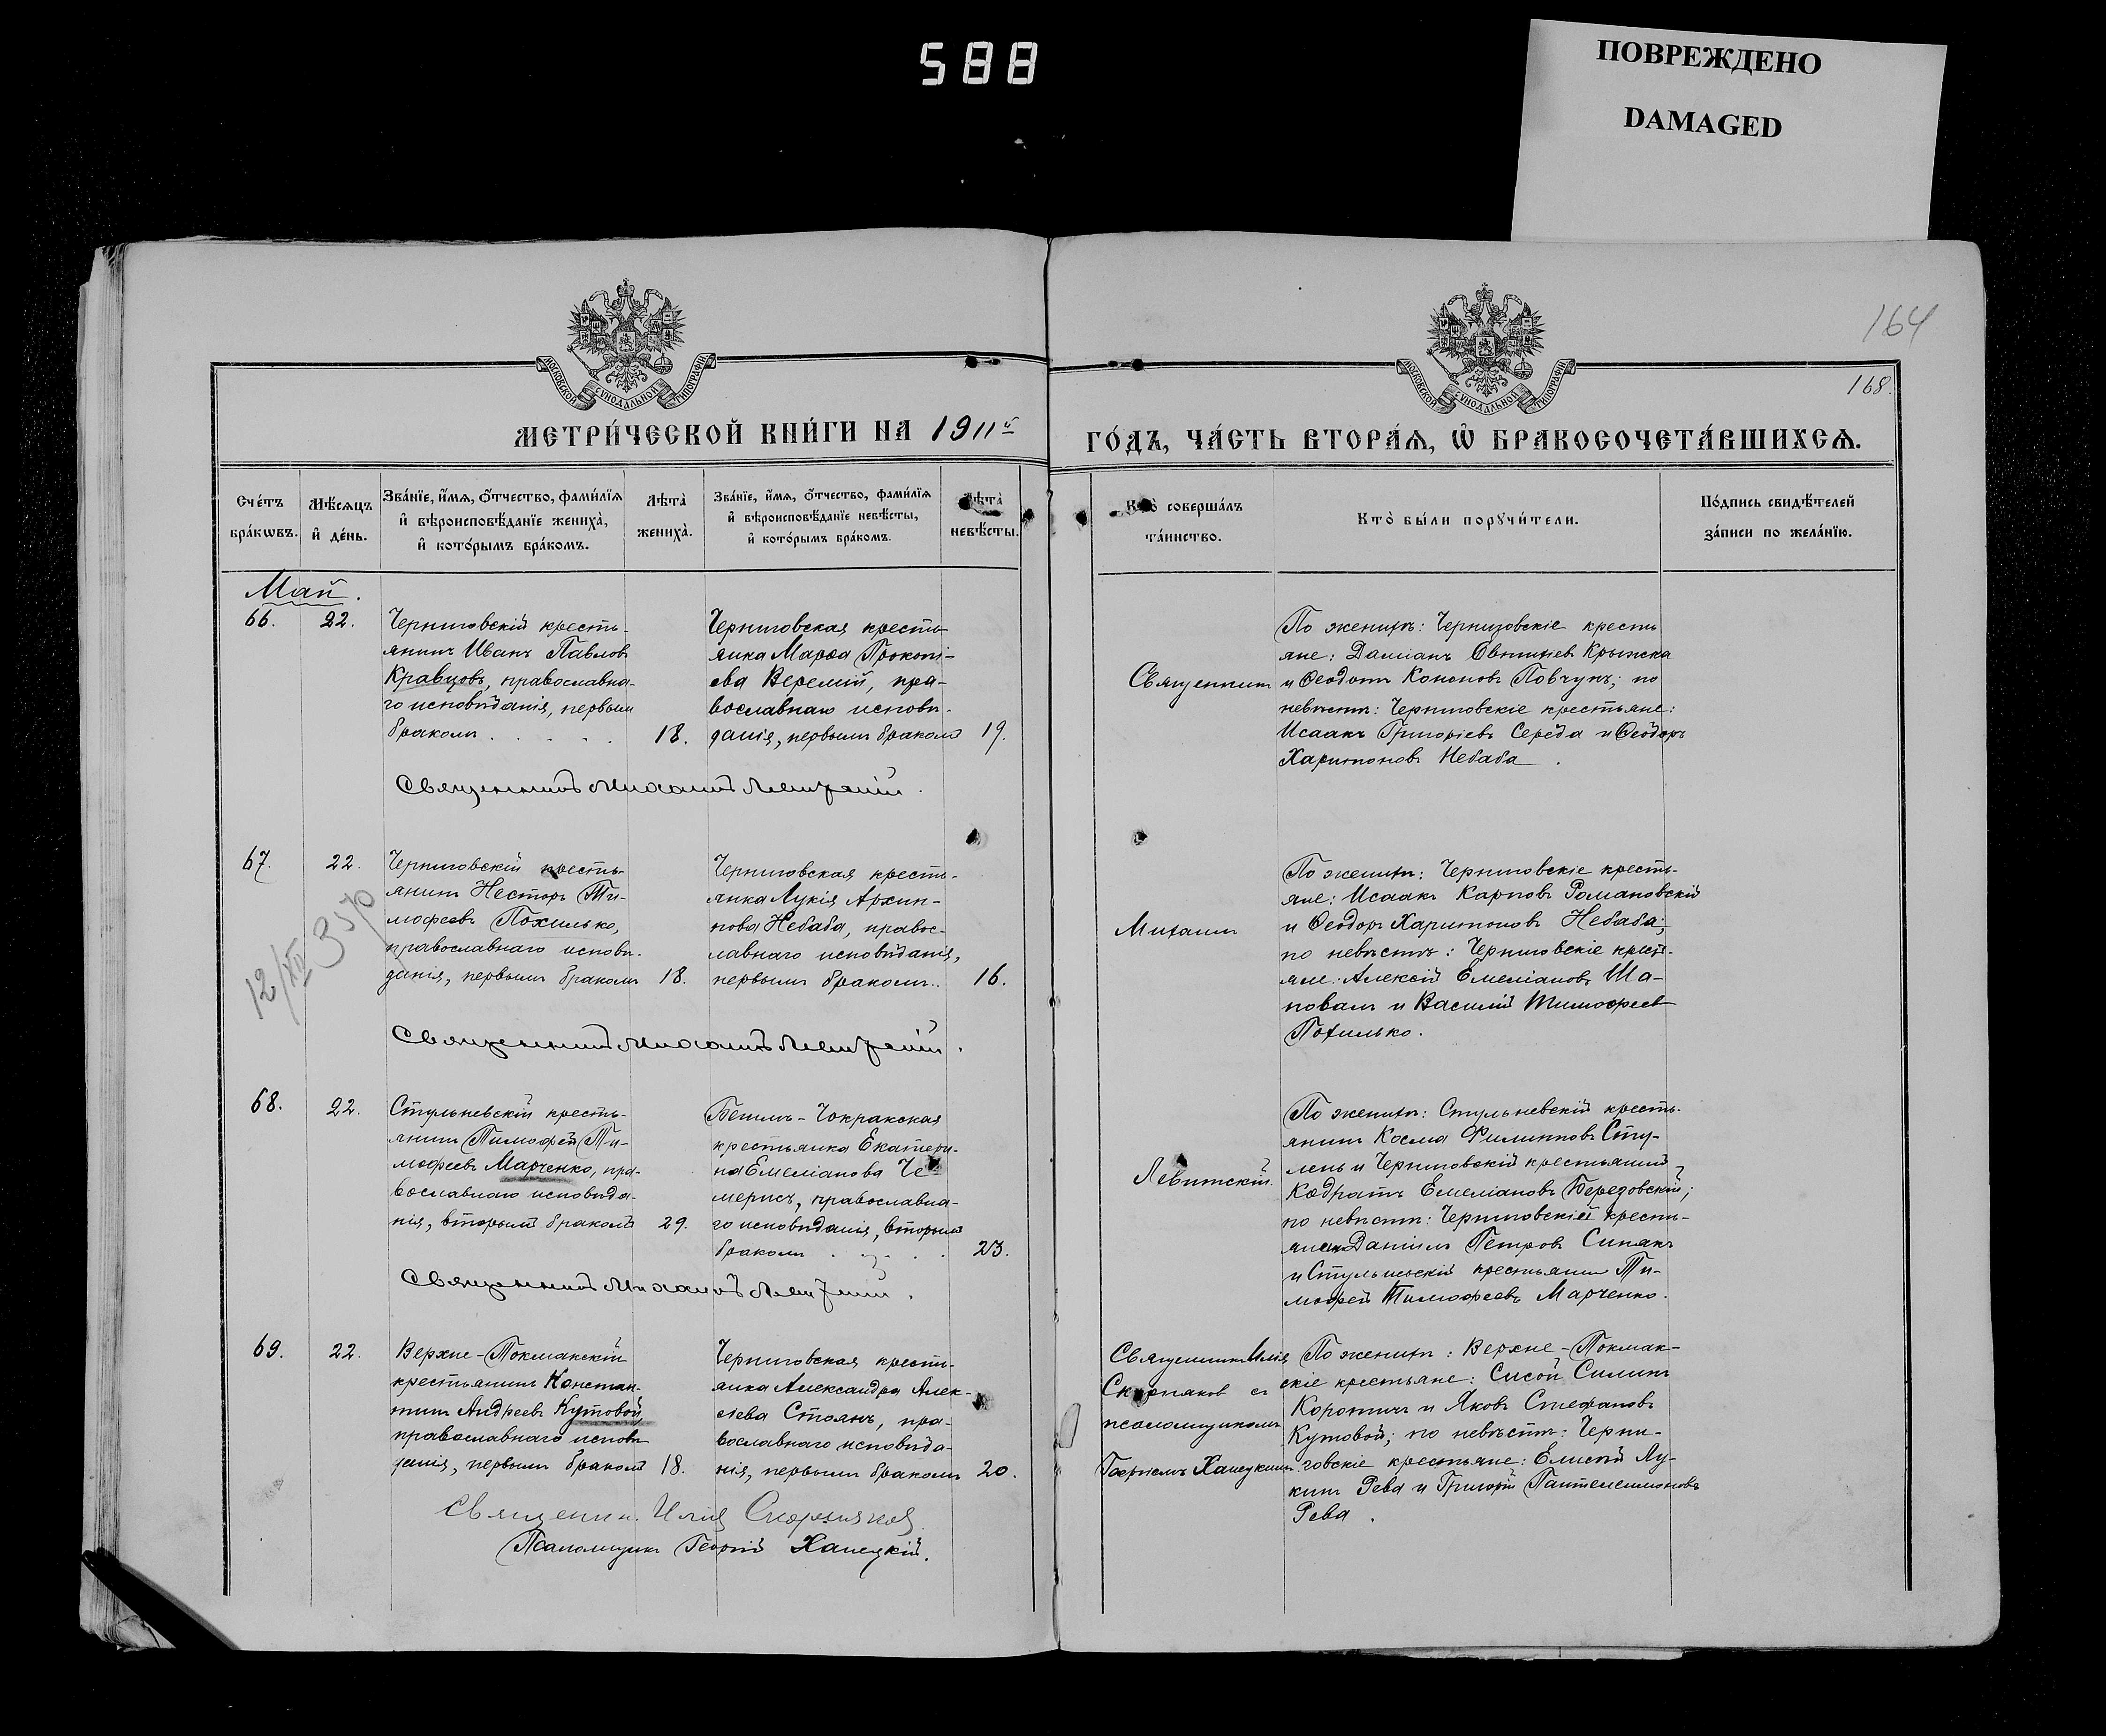 588
ПОВРЕЖДЕНО
DAMAGED
164
168.
МОСКОВСКОЙ СѴНОДАЛЬНОЙ ТИПОГРАФІИ
МОСКОВСКОЙ СѴНОДАЛЬНОЙ ТИПОГРАФІИ
МЕТРИ́ЧЕСКОЙ КНИ́ГИ НА 1911й
ГО́ДЪ, ЧА́СТЬ ВТОРА́Ѧ, Ѡ БРАКОСОЧЕТА́ВШИХСѦ.
Сче́тъ бра́кѡвъ.
Мѣ́сѧцъ и҆ де́нь.
Зва́нїе, и҆́мѧ, ѻ҆́тчество, фами́лїѧ
и҆ вѣроисповѣ́данїе жениха̀,
и҆ кото́рымъ бра́комъ.
Лѣта̀ жениха̀.
Зва́нїе, и҆́мѧ, ѻ҆́тчество, фами́лїѧ
и҆ вѣроисповѣ́данїе невѣ́сты,
и҆ кото́рымъ бра́комъ.
Лѣта̀ невѣ́сты.
Кто̀ соверша́лъ та́инство.
Кто̀ бы́ли порꙋчи́тели.
По́дпись свидѣ́телей за́писи по жела́нїю.
Май.
66.
22.
Черниговскій кресть-
янинъ Иванъ Павловъ
Кравцовъ, православна-
го исповѣданія, первымъ
бракомъ . . . . .
18.
Черниговская кресть-
янка Марѳа Прокопі-
ева Веремій, пра-
вославнаго исповѣ-
данія, первымъ бракомъ
19.
Священникъ
По женихѣ: Черниговскіе кресть
яне: Даміанъ Крыжка
и Ѳеодотъ Кононовъ Повчунъ; по
невѣстѣ: Черниговскіе крестьяне:
Исаакъ Григоріевъ Середа и Ѳеодоръ
Харитоновъ Небаба.
Священникъ Михаилъ Левитскій.
67.
22.
12/XII
Черниговскій кресть-
янинъ Несторъ Ти-
моѳеевъ Похилько,
православнаго исповѣ-
данія, первымъ бракомъ
18.
Черниговская кресть-
янка Лукія Архип-
пова Небаба, правос-
лавнаго исповѣданія,
первымъ бракомъ..
16.
Михаилъ
По женихѣ: Черниговскіе кресть-
яне: Исаакъ Карповъ Романовскій
и Ѳеодоръ Харитоновъ Небаба;
по невѣстѣ: Черниговскіе крест-
яне: Алексій Емеліановъ Ша-
повалъ и Василій Тимоѳеевъ
Похилько.
Священникъ Михаилъ Левитскій.
68.
22.
Стульневскій кресть-
янинъ Тимофей Ти-
мофеевъ Марченко, пра-
вославнаго исповѣда-
нія, вторымъ бракомъ
29.
Бешлъ-Чокракская
крестьянка Екатери-
на Емеліанова Че-
мерисъ, православна-
го исповѣданія, вторымъ
бракомъ . . . .
23.
Левитскій.
По женихѣ: Стульневскій кресть-
янинъ Косма Филипповъ Сту-
лень и Черниговскій крестьянинъ
Кодратъ Емеліановъ Березовскій;
по невѣстѣ: Черниговскій кресть-
Даніилъ Петровъ Синакъ
и Стульневскій крестьянинъ Ти-
мофей Тимофеевъ Марченко.
Священникъ Михаилъ Левитскій.
69.
22.
Верхне-Токмакскій
крестьянинъ Констан-
тинъ Андреевъ Кутовой,
православнаго исповѣ
данія, первымъ бракомъ
18.
Черниговская кресть-
янка Александра Алек-
сіева Стоянъ, пра-
вославнаго исповѣда-
нія, первымъ бракомъ
20.
Священникъ Илія
Скорняковъ съ
псаломщикомъ
Георгіемъ Ханецкимъ.
По женихѣ: Верхне-Токмак-
скіе крестьяне: Сисой Силинъ
Коротичъ и Яковъ Стефановъ
Кутовой; по невѣстѣ: Черни-
говскіе крестьяне: Елисей Лу-
кинъ Рева и Григорій Пантелеимоновъ
Рева.
Священн. Илія Скорняковъ
Псаломщикъ Георгій Ханецкій.